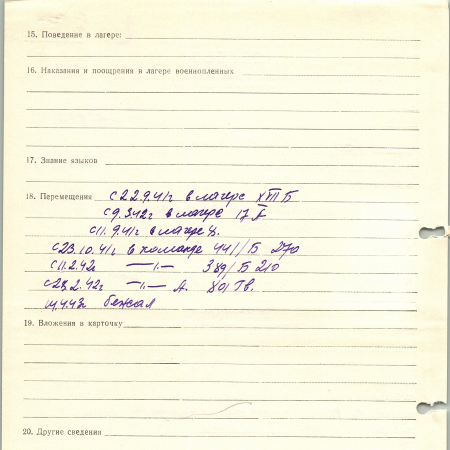 15. Поведение в лагере:
16. Наказания и поощрения в лагере военнопленных
17. Знание языков
18. Перемещения с 22.9.41г в лагере XVIII Б
с 9.3.42г в лагере 17
с 11.9.41г в лагере
с 23.10.41г в команде 4411/Б 270
с 11.2.42г —"— 389/Б 210
с 28.2.42г —"— А. 801 Гв.
14.4.43г бежал
19. Вложения в карточку
20. Другие сведения